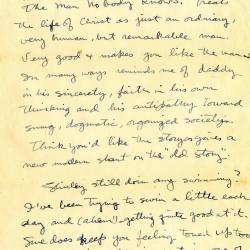 The Man Nobody Knows. Treats
the life of Christ as just an ordinary,
very human, but remarkable man.
Very good & makes you like the man.
In many ways reminds me of daddy
in his sincerity, faith in his own
thinking and his antipathy toward
smug, dogmatic, organized society.
Think you'd like the story gives a
new modern slant on the "old story".
Shirley still doin any swimming?
I've been trying to swim a little each
day and (ahem!) getting quite good at it.
Sure does keep you feeling touch up too